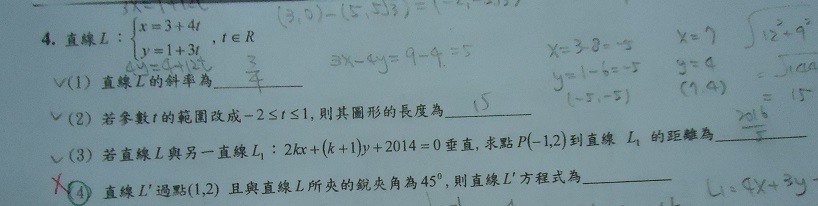 3x=1+12t
(3,0)-(5,5√3)=(-2,-5√3)
4. 直線 L：{x=3+4t, y=1+3t, t∈R
4y=4+12t
3x-4y=9-4=5
x=3-8=-5
y=1-6=-5
(-5,-5)
x=7
y=4
(7,4)
√12²+9²
=√144
=15
✓(1) 直線 L 的斜率為 3/4
✓(2) 若參數 t 的範圍改成 -2≤t≤1, 則其圖形的長度為 15
✓(3) 若直線 L 與另一直線 L₁：2kx+(k+1)y+2014=0 垂直, 求點 P(-1,2) 到直線 L₁ 的距離為 2016/5
✗(4) 直線 L' 過點(1,2) 且與直線 L 所夾的銳夾角為 45⁰, 則直線 L' 方程式為
L₁=4x+3y-